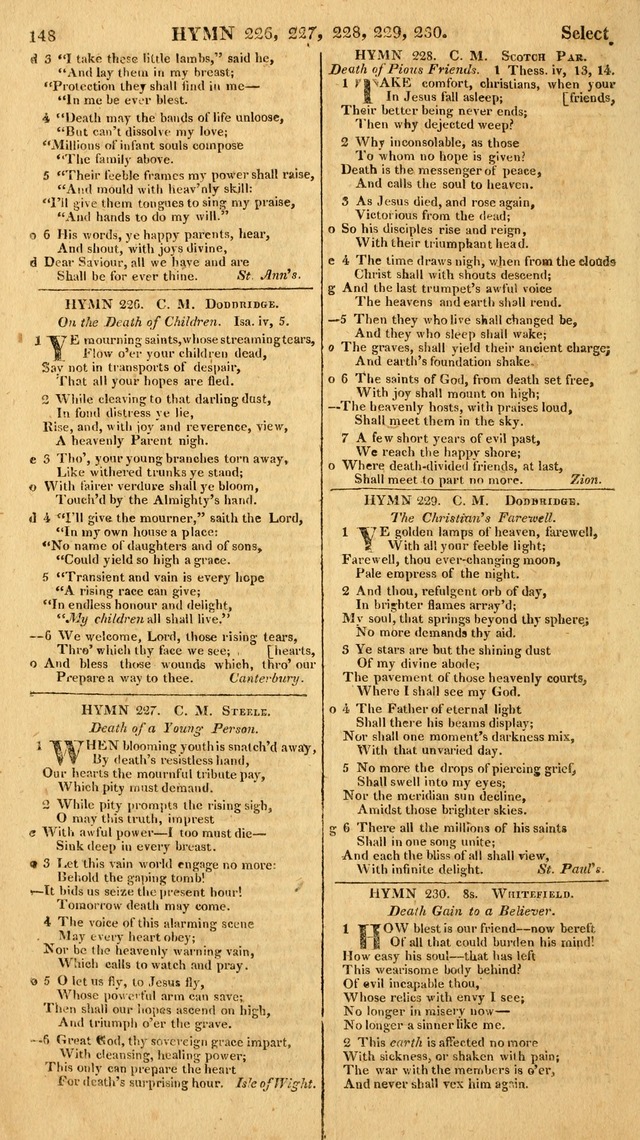 148 HYMN 226, 227, 228, 229, 230. Select.
d 3 "I take these little lambs," said he,
"And lay them in my breast;
"Protection they shall find in me—
"In me be ever blest.
4 "Death may the bands of life unloose,
"But can't dissolve my love;
"Millions of infant souls compose
"The family above.
5 "Their feeble frames my power shall raise,
"And mould with heav'nly skill:
"I'll give them tongues to sing my praise,
"And hands to do my will."
o 6 His words, ye happy parents, hear,
And shout, with joys divine,
d Dear Saviour, all we have and are
Shall be for ever thine. St. Ann's.
HYMN 226. C. M. Doddridge.
On the Death of Children. Isa. iv, 5.
1 YE mourning saints, whose streaming tears,
Flow o'er your children dead,
Say not in transports of despair,
That all your hopes are fled.
2 While cleaving to that darling dust,
In fond distress ye lie,
Rise, and, with joy and reverence, view,
A heavenly Parent nigh.
e 3 Tho', your young branches torn away,
Like withered trunks ye stand;
o With fairer verdure shall ye bloom,
Touch'd by the Almighty's hand.
d 4 "I'll give the mourner," saith the Lord,
"In my own house a place:
"No name of daughters and of sons,
"Could yield so high a grace.
5 "Transient and vain is every hope
"A rising race can give;
"In endless honour and delight,
"My children all shall live."
—6 We welcome, Lord, those rising tears,
Thro' which thy face we see; [hearts,
o And bless those wounds which, thro' our
Prepare a way to thee. Canterbury.
HYMN 227. C. M. Steele.
Death of a Young Person.
1 WHEN blooming youth is snatch'd away,
By death's resistless hand,
Our hearts the mournful tribute pay,
Which pity must demand.
2 While pity prompts the rising sigh,
O may this truth, imprest
e With awful power—I too must die—
Sink deep in every breast.
3 Let this vain world engage no more:
Behold the gaping tomb!
—It bids us seize the present hour!
Tomorrow death may come.
4 The voice of this alarming scene
May every heart obey;
Nor be the heavenly warning vain,
Which calls to watch and pray.
o 5 O let us fly, to Jesus fly,
Whose powerful arm can save;
Then shall our hopes ascend on high,
And triumph o'er the grave.
—6 Great God, thy sovereign grace impart,
With cleansing, healing power;
This only can prepare the heart
For death's surprising hour. Isle of Wight.
HYMN 228. C. M. Scotch Par.
Death of Pious Friends. 1 Thess. iv, 13, 14.
1 TAKE comfort, christians, when your
In Jesus fall asleep; [friends,
Their better being never ends;
Then why dejected weep?
2 Why inconsolable, as those
To whom no hope is given?
Death is the messenger of peace,
And calls the soul to heaven.
3 As Jesus died, and rose again,
Victorious from the dead;
o So his disciples rise and reign,
With their triumphant head.
e 4 The time draws nigh, when from the clouds
Christ shall with shouts descend;
g And the last trumpet's awful voice
The heavens and earth shall rend.
—5 Then they who live shall changed be,
And they who sleep shall wake;
o The graves, shall yield their ancient charge;
And earth's foundation shake.
o 6 The saints of God, from death set free,
With joy shall mount on high;
—The heavenly hosts, with praises loud,
Shall meet them in the sky.
7 A few short years of evil past,
We reach the happy shore;
o Where death-divided friends, at last,
Shall meet to part no more. Zion.
HYMN 229. C. M. Doddridge.
The Christian's Farewell.
1 YE golden lamps of heaven, farewell,
With all your feeble light;
Farewell, thou ever-changing moon,
Pale empress of the night.
2 And thou, refulgent orb of day,
In brighter flames array'd;
My soul, that springs beyond thy sphere;
No more demands thy aid.
3 Ye stars are but the shining dust
Of my divine abode;
The pavement of those heavenly courts,
Where I shall see my God.
o 4 The Father of eternal light
Shall there his beams display;
Nor shall one moment's darkness mix,
With that unvaried day.
5 No more the drops of piercing grief,
Shall swell into my eyes;
Nor the meridian sun decline,
Amidst those brighter skies.
g 6 There all the millions of his saints
Shall in one song unite;
And each the bliss of all shall view,
With infinite delight. St. Paul's.
HYMN 230. 8s. Whitefield.
Death Gain to a Believer.
1 HOW blest is our friend—now bereft
Of all that could burden his mind!
How easy his soul—that has left
This wearisome body behind?
Of evil incapable thou,
Whose relics with envy I see;
No longer in misery now—
No longer a sinner like me.
2 This earth is affected no more
With sickness, or shaken with pain;
The war with the members is o'er,
And never shall vex him again.